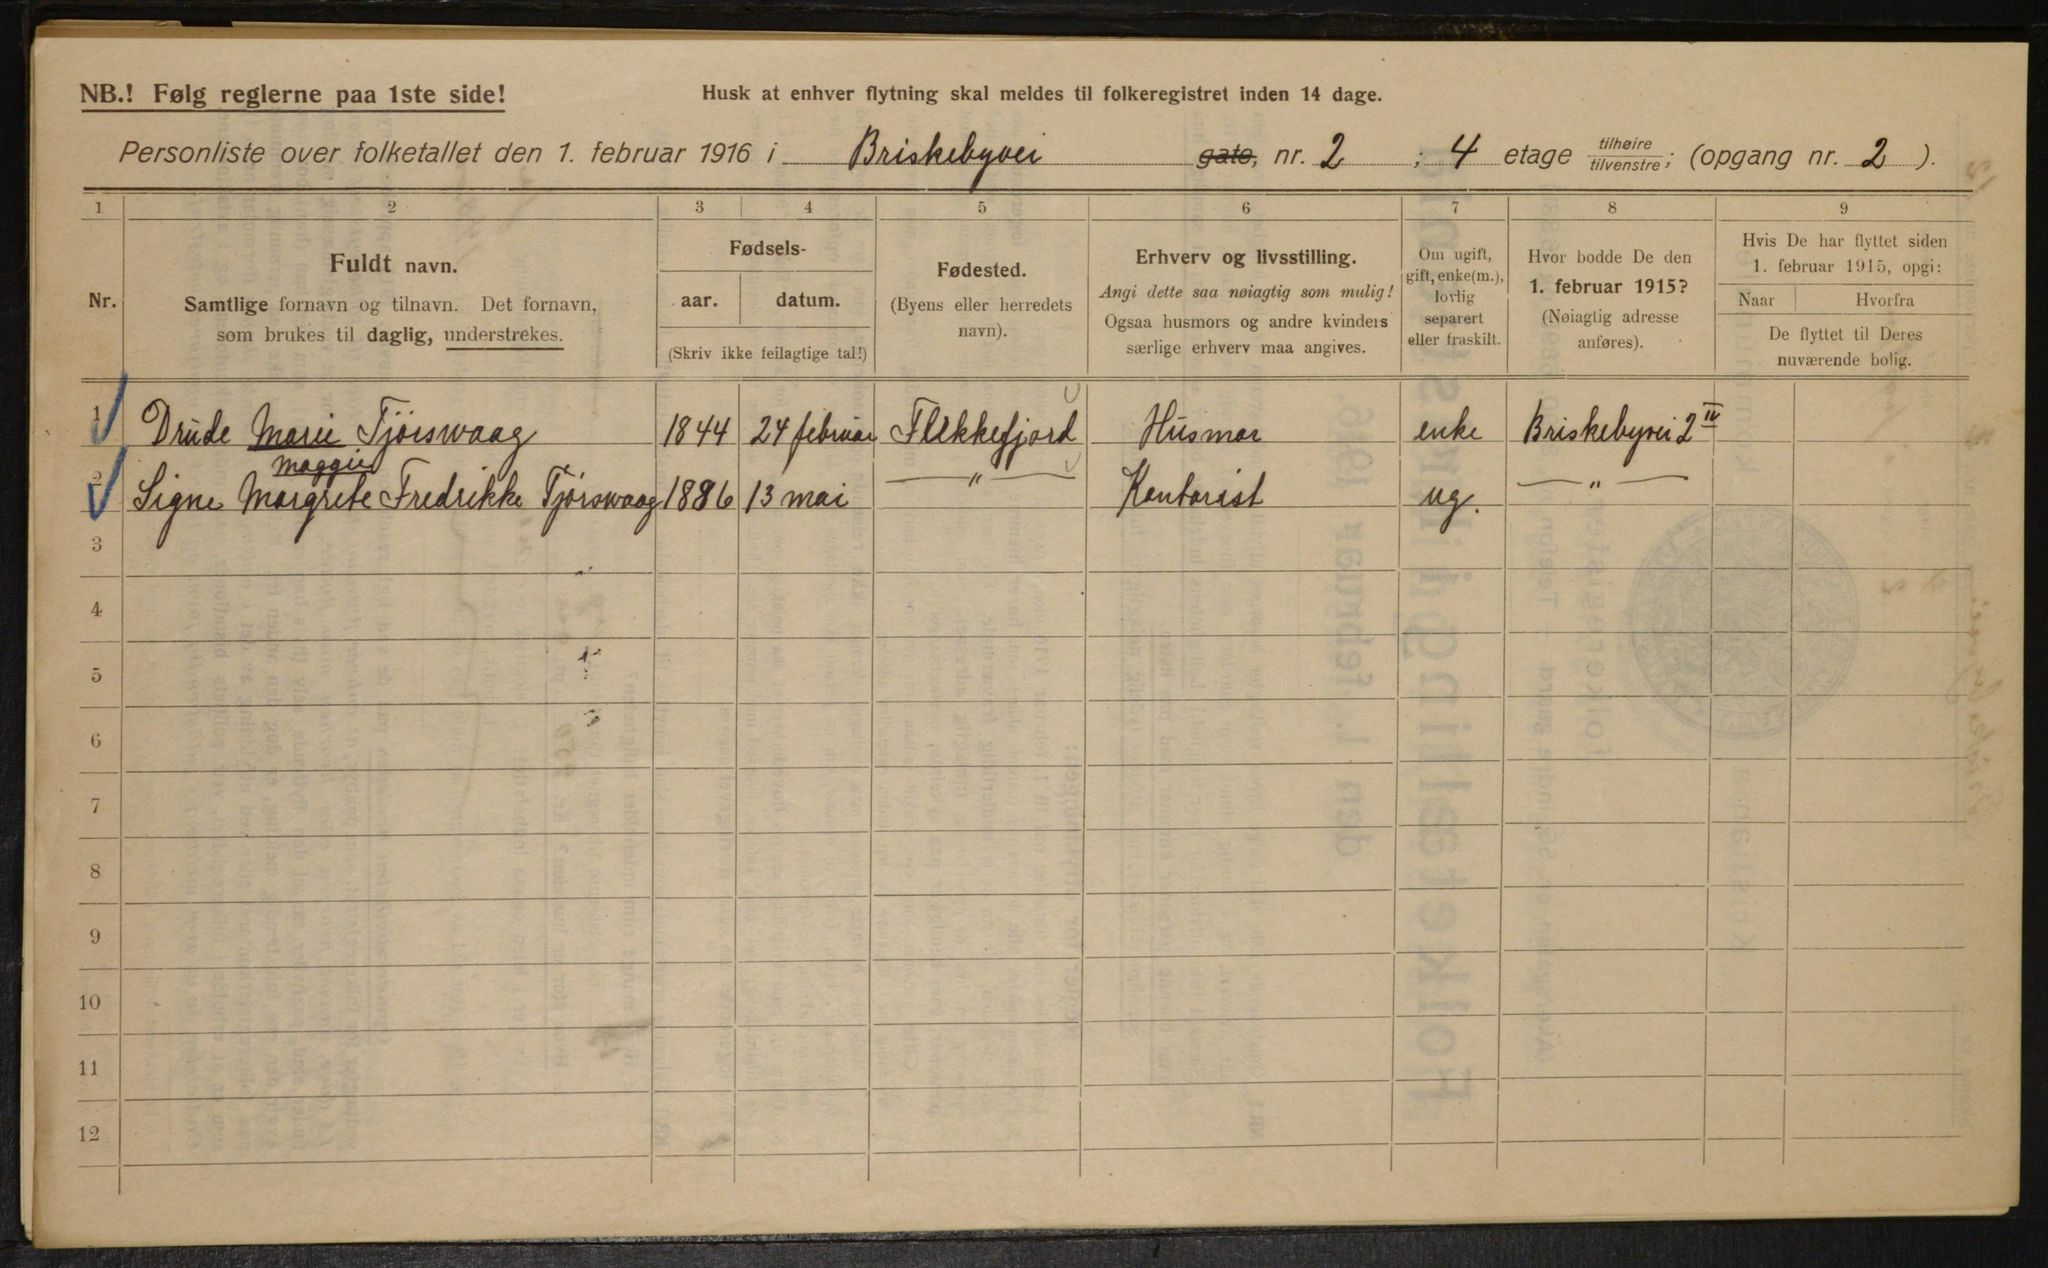 NB.! Følg reglerne paa 1ste side!
Husk at enhver flytning skal meldes til folkeregistret inden 14 dage.
Personliste over folketallet den 1. februar 1916 i Briskebyvei gate, nr. 2 ; 4 etage tilhøire/tilvenstre; (opgang nr. 2 ).
1 2 3 4 5 6 7 8 9
Nr.
Fuldt navn.
Samtlige fornavn og tilnavn. Det fornavn,
som brukes til daglig, understrekes.
Fødsels-
aar. datum.
(Skriv ikke feilagtige tal!)
Fødested.
(Byens eller herredets
navn).
Erhverv og livsstilling.
Angi dette saa nøiagtig som mulig!
Ogsaa husmors og andre kvinders
særlige erhverv maa angives.
Om ugift,
gift, enke(m.),
lovlig
separert
eller fraskilt.
Hvor bodde De den
1. februar 1915?
(Nøiagtig adresse
anføres).
Hvis De har flyttet siden
1. februar 1915, opgi:
Naar Hvorfra
De flyttet til Deres
nuværende bolig.
1 Drude Marie Tjörswaag 1844 24 februar Flekkefjord Husmor enke Briskebyvei 2 IV
Maggie
2 Signe Margrete Fredrikke Tjörswaag 1886 13 mai — " — Kontorist ug. — " —
3
4
5
6
7
8
9
10
11
12